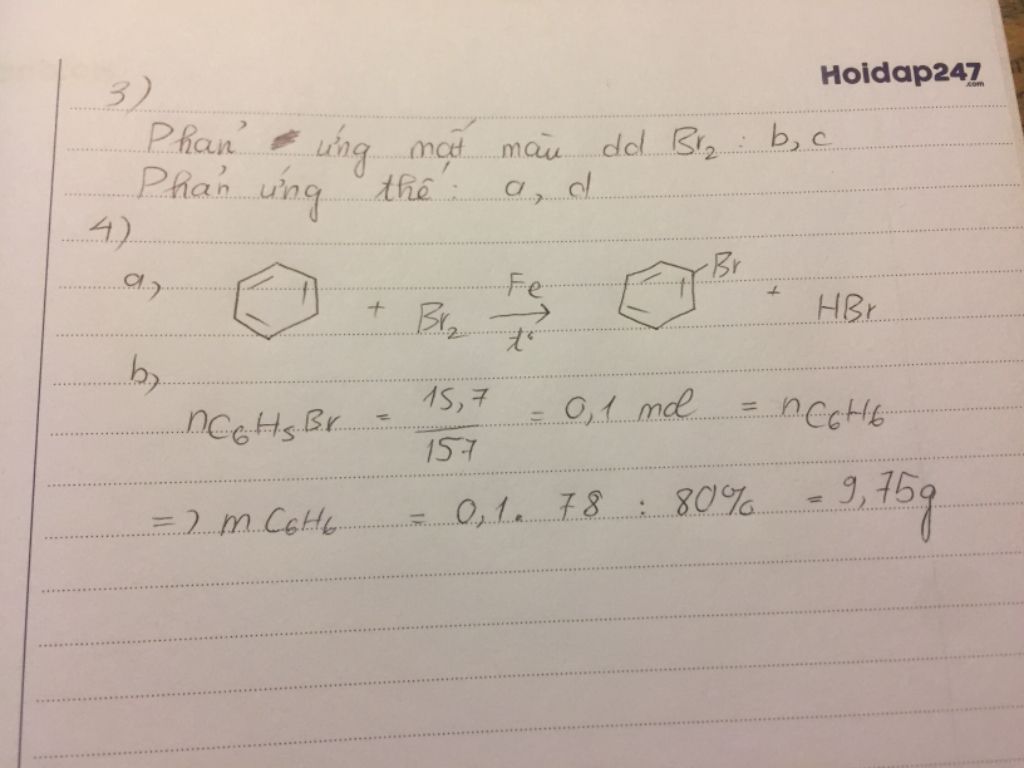 Hoidap247.com
3)
Phản ứng mất màu dd Br2 : b, c
Phản ứng thế : a, d
4)
a, + Br2 Fe t° Br + HBr
b,
nC6H5Br = 15,7 / 157 = 0,1 mol = nC6H6
=> mC6H6 = 0,1. 78 : 80% = 9,75g